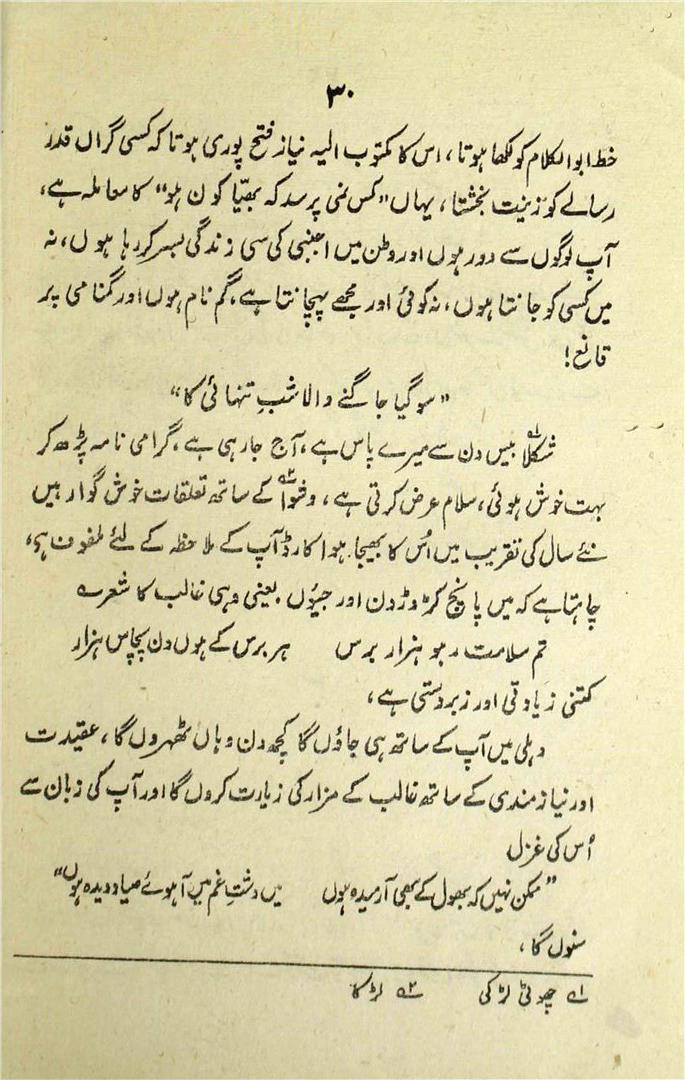 ۳۰
خط ابوالکلام کو لکھا ہوتا، اس کا مکتوب الیہ نیاز فتح پوری ہوتا کہ کسی گراں قدر
رسالے کو زینت بخشتا، یہاں "کس نمی پرسد کہ بھیّا کون ہو" کا معاملہ ہے،
آپ لوگوں سے دور ہوں اور وطن میں اجنبی کی سی زندگی بسر کر رہا ہوں، نہ
میں کسی کو جانتا ہوں، نہ کوئی اور مجھے پہچانتا ہے، گم نام ہوں اور گمنامی پر
قانع!
"سو گیا جاگنے والا شبِ تنہائی کا"
شکلا۱؎ بیس دن سے میرے پاس ہے، آج جا رہی ہے، گرامی نامہ پڑھ کر
بہت خوش ہوئی، سلام عرض کرتی ہے، وشوا۲؎ کے ساتھ تعلقات خوش گوار ہیں
نئے سال کی تقریب میں اُس کا بھیجا ہوا کارڈ آپ کے ملاحظہ کے لئے ملفوف ہے،
چاہتا ہے کہ میں پانچ کروڑ دن اور جیوں یعنی وہی غالب کا شعر ؎
تم سلامت رہو ہزار برس ہر برس کے ہوں دن پچاس ہزار
کتنی زیادتی اور زبردستی ہے،
دہلی میں آپ کے ساتھ ہی جاؤں گا کچھ دن وہاں ٹھہروں گا، عقیدت
اور نیازمندی کے ساتھ غالب کے مزار کی زیارت کروں گا اور آپ کی زبان سے
اُس کی غزل
"ممکن نہیں کہ بھول کے بھی آرمیدہ ہوں میں دشتِ غم میں آہوئے صیاد دیدہ ہوں"
سنوں گا،
۱؎ چھوٹی لڑکی ۲؎ لڑکا